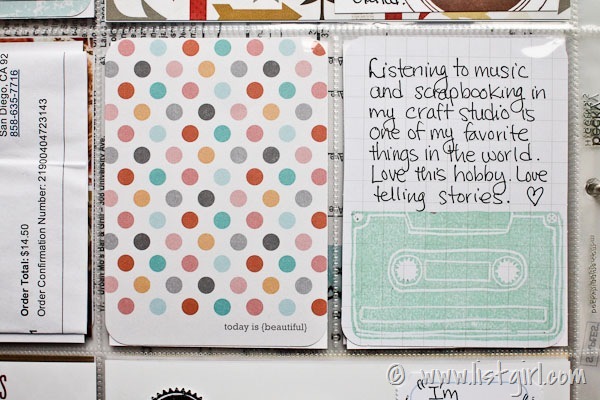 San Diego, CA 92
858-635-7716
Order Total: $14.50
Order Confirmation Number: 21900404723143
1
today is {beautiful}
Listening to music
and scrapbooking in
my craft studio is
one of my favorite
things in the world.
Love this hobby. Love
telling stories. ♡
I'm
© www.listgirl.com